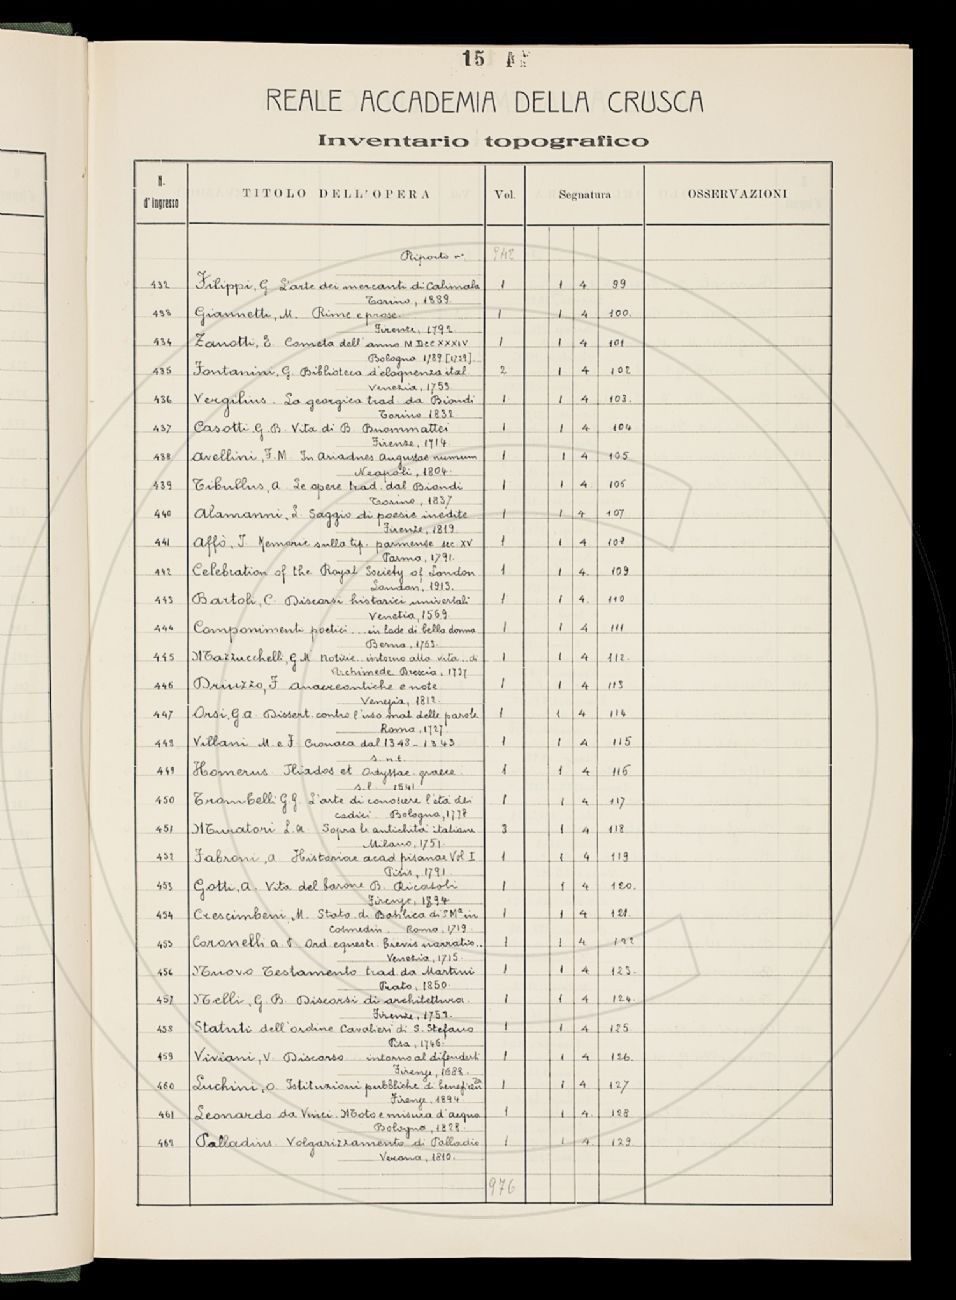 15
REALE ACCADEMIA DELLA CRUSCA
Inventario topografico
N. d'ingresso TITOLO DELL'OPERA Vol. Segnatura OSSERVAZIONI
Riporto n. 942
432 Filippi, G L'arte dei mercanti di Calimala 1 1 4 99
Torino, 1889
433 Giannetti, M. Rime e prose. 1 1 4 100.
Firenze, 1792
434 Zanotti, E. Cometa dell'anno MDCCXXXIV 1 1 4 101
Bologna [1739].
435 Fontanini, G. Biblioteca d'eloquenza ital 2 1 4 102
Venezia, 1753
436 Vergilius. La georgica trad. da Biondi 1 1 4 103.
Torino 1832
437 Casotti, G. B. Vita di B. Buommattei 1 1 4 104
Firenze, 1714.
438 Avellini, F. M. In Ariadnes Augustae numum 1 1 4 105
Neapoli, 1804.
439 Tibullus, A. Le opere trad. dal Biondi 1 1 4 106
Torino, 1837
440 Alamanni, L. Saggio di poesie inedite 1 1 4 107
Firenze, 1819
441 Affò, I. Memorie sulla tip. parmense sec XV 1 1 4 108
Parma, 1791.
442 Celebration of the Royal Society of London 1 1 4. 109
London, 1913.
443 Bartoli, C. Discorsi historici universali 1 1 4. 110
Venetia, 1569.
444 Componimenti poetici... in lode di bella donna 1 1 4 111
Berna, 1763.
445 Mazzucchelli, G. M. Notizie.. intorno alla vita.. di 1 1 4 112.
Archimede Brescia, 1737
446 Driuzzo, F. Anacreontiche e note 1 1 4 113
Venezia, 1812.
447 Orsi, G. A. Dissert. contro l'uso mat. delle parole 1 1 4 114
Roma, 1727
448 Villani M. e F. Cronaca dal 1348-1363 1 1 4 115
s. n. t.
449 Homerus Iliados et Odyssae graece. 1 1 4 116
s. l. 1541
450 Trombelli G. G. L'arte di conoscere l'età dei 1 1 4 117
codici Bologna, 1778
451 Muratori L. A. Sopra le antichità italiane 3 1 4 118
Milano, 1751.
452 Fabroni, A. Historiae acad pisanae Vol I 1 1 4 119
Pisis, 1791.
453 Gotti, A. Vita del barone B. Ricasoli 1 1 4 120.
Firenze, 1894
454 Crescimbeni, M. Stato d. Basilica di S Mª in 1 1 4 121.
Cosmedin. Roma, 1719.
455 Coronelli A. V. Ord equestr. brevis narratio.. 1 1 4 122
Venezia, 1715.
456 Nuovo Testamento trad. da Martini 1 1 4 123.
Prato, 1850.
457 Nelli, G. B. Discorsi di architettura. 1 1 4 124.
Firenze, 1753.
458 Statuti dell'ordine Cavalieri di S. Stefano 1 1 4 125
Pisa, 1746.
459 Viviani, V. Discorso intorno al difendersi 1 1 4 126.
Firenze, 1688.
460 Luchini, O. Istituzioni pubbliche di beneficen 1 1 4 127
Firenze, 1894.
461 Leonardo da Vinci. Moto e misura d'acqua 1 1 4. 128
Bologna, 1828.
462 Palladius. Volgarizzamento di Palladio 1 1 4. 129.
Verona, 1810.
976